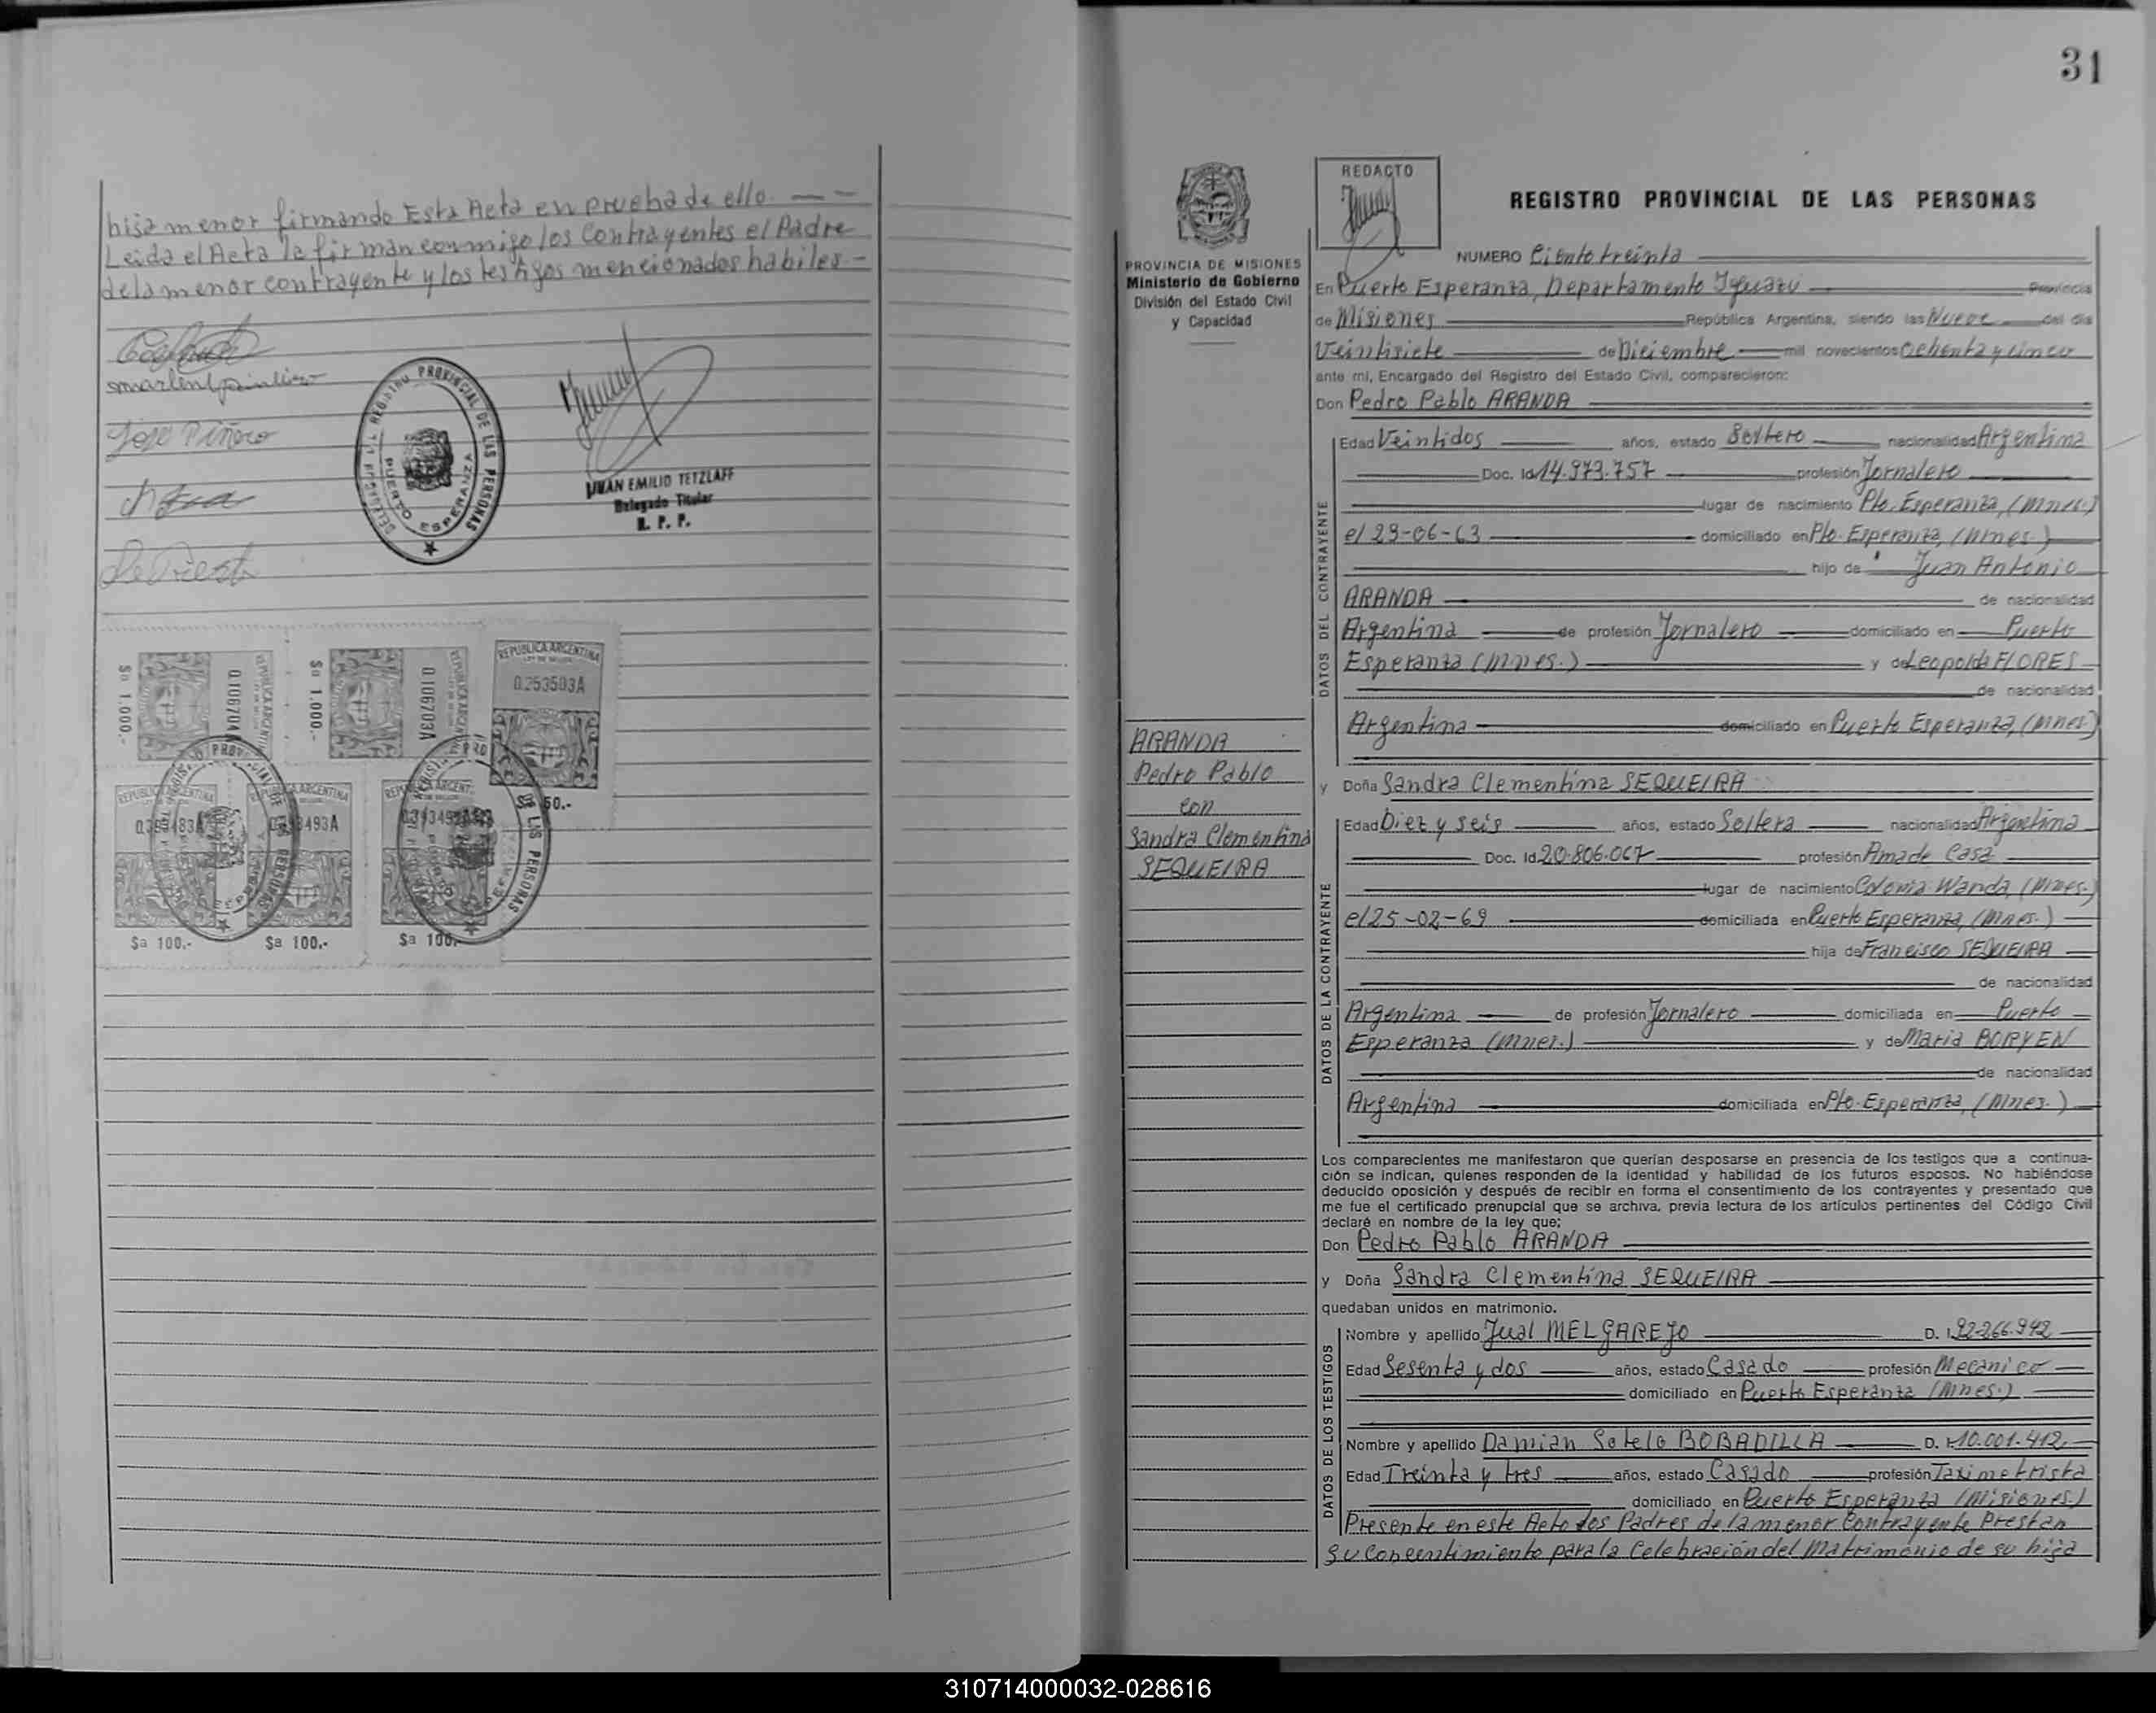 hija menor firmando Esta Acta en prueba de ello. — —
Leida el Acta la firman conmigo los Contrayentes el Padre
de la menor contrayente y los testigos mencionados habiles. —
José Piñero
DELEGACION REGISTRO PROVINCIAL DE LAS PERSONAS
PUERTO ESPERANZA
JUAN EMILIO TETZLAFF
Delegado Titular
R. P. P.
REPUBLICA ARGENTINA
0.253503A
$a 50.-
$a 1.000.-
REPUBLICA ARGENTINA
$a 1.000.-
0.106703A
REPUBLICA ARGENTINA
REPUBLICA ARGENTINA
$a 100.-
REPUBLICA ARGENTINA
$a 100.-
$a 100.-
31
REDACTO
REGISTRO PROVINCIAL DE LAS PERSONAS
PROVINCIA DE MISIONES
Ministerio de Gobierno
División del Estado Civil
y Capacidad
NUMERO Ciento treinta
En Puerto Esperanza, Departamento Iguazú Provincia
de Misiones República Argentina, siendo las Nueve del día
Veintisiete de Diciembre mil novecientos Ochenta y cinco
ante mí, Encargado del Registro del Estado Civil, comparecieron:
Don Pedro Pablo ARANDA
DATOS DEL CONTRAYENTE
Edad Veintidos años, estado Soltero nacionalidad Argentina
Doc. Id 14.973.757 profesión Jornalero
lugar de nacimiento Pto. Esperanza, (Mnes.)
el 29-06-63 domiciliado en Pto. Esperanza, (Mnes.)
hijo de Juan Antonio
ARANDA de nacionalidad
Argentina de profesión Jornalero domiciliado en Puerto
Esperanza (Mnes.) y de Leopolda FLORES
de nacionalidad
Argentina domiciliado en Puerto Esperanza, (Mnes.)
ARANDA
Pedro Pablo
con
Sandra Clementina
SEQUEIRA
y Doña Sandra Clementina SEQUEIRA
DATOS DE LA CONTRAYENTE
Edad Diez y seis años, estado Soltera nacionalidad Argentina
Doc. Id 20.806.067 profesión Ama de Casa
lugar de nacimiento Colonia Wanda, (Mnes.)
el 25-02-69 domiciliada en Puerto Esperanza, (Mnes.)
hija de Francisco SEQUEIRA
de nacionalidad
Argentina de profesión Jornalero domiciliada en Puerto
Esperanza (Mnes.) y de Maria BORYEN
de nacionalidad
Argentina domiciliada en Pto. Esperanza, (Mnes.)
Los comparecientes me manifestaron que querían desposarse en presencia de los testigos que a continua-
ción se indican, quienes responden de la identidad y habilidad de los futuros esposos. No habiéndose
deducido oposición y después de recibir en forma el consentimiento de los contrayentes y presentado que
me fue el certificado prenupcial que se archiva, previa lectura de los artículos pertinentes del Código Civil
declaré en nombre de la ley que:
Don Pedro Pablo ARANDA
y Doña Sandra Clementina SEQUEIRA
quedaban unidos en matrimonio.
DATOS DE LOS TESTIGOS
Nombre y apellido Jual MELGAREJO D. I. 92.266.942
Edad Sesenta y dos años, estado Casado profesión Mecánico
domiciliado en Puerto Esperanza (Mnes.)
Nombre y apellido Damian Sotelo BOBADILLA D. I. 10.001.412
Edad Treinta y tres años, estado Casado profesión Taximetrista
domiciliado en Puerto Esperanza (Misiones)
Presente en este Acto los Padres de la menor Contrayente Prestan
su Consentimiento para la Celebración del Matrimonio de su hija
310714000032-028616